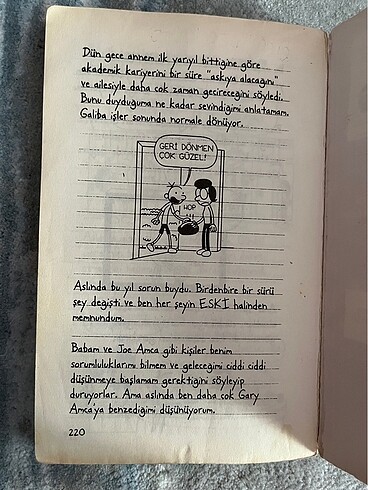 Dün gece annem ilk yarıyıl bittiğine göre
akademik kariyerini bir süre "askıya alacağını"
ve ailesiyle daha çok zaman geçireceğini söyledi.
Bunu duyduğuma ne kadar sevindiğimi anlatamam.
Galiba işler sonunda normale dönüyor.
GERİ DÖNMEN
ÇOK GÜZEL!
HOP
Aslında bu yıl sorun buydu. Birdenbire bir sürü
şey değişti ve ben her şeyin ESKİ halinden
memnundum.
Babam ve Joe Amca gibi kişiler benim
sorumluluklarımı bilmem ve geleceğimi ciddi ciddi
düşünmeye başlamam gerektiğini söyleyip
duruyorlar. Ama aslında ben daha çok Gary
Amca'ya benzediğimi düşünüyorum.
220